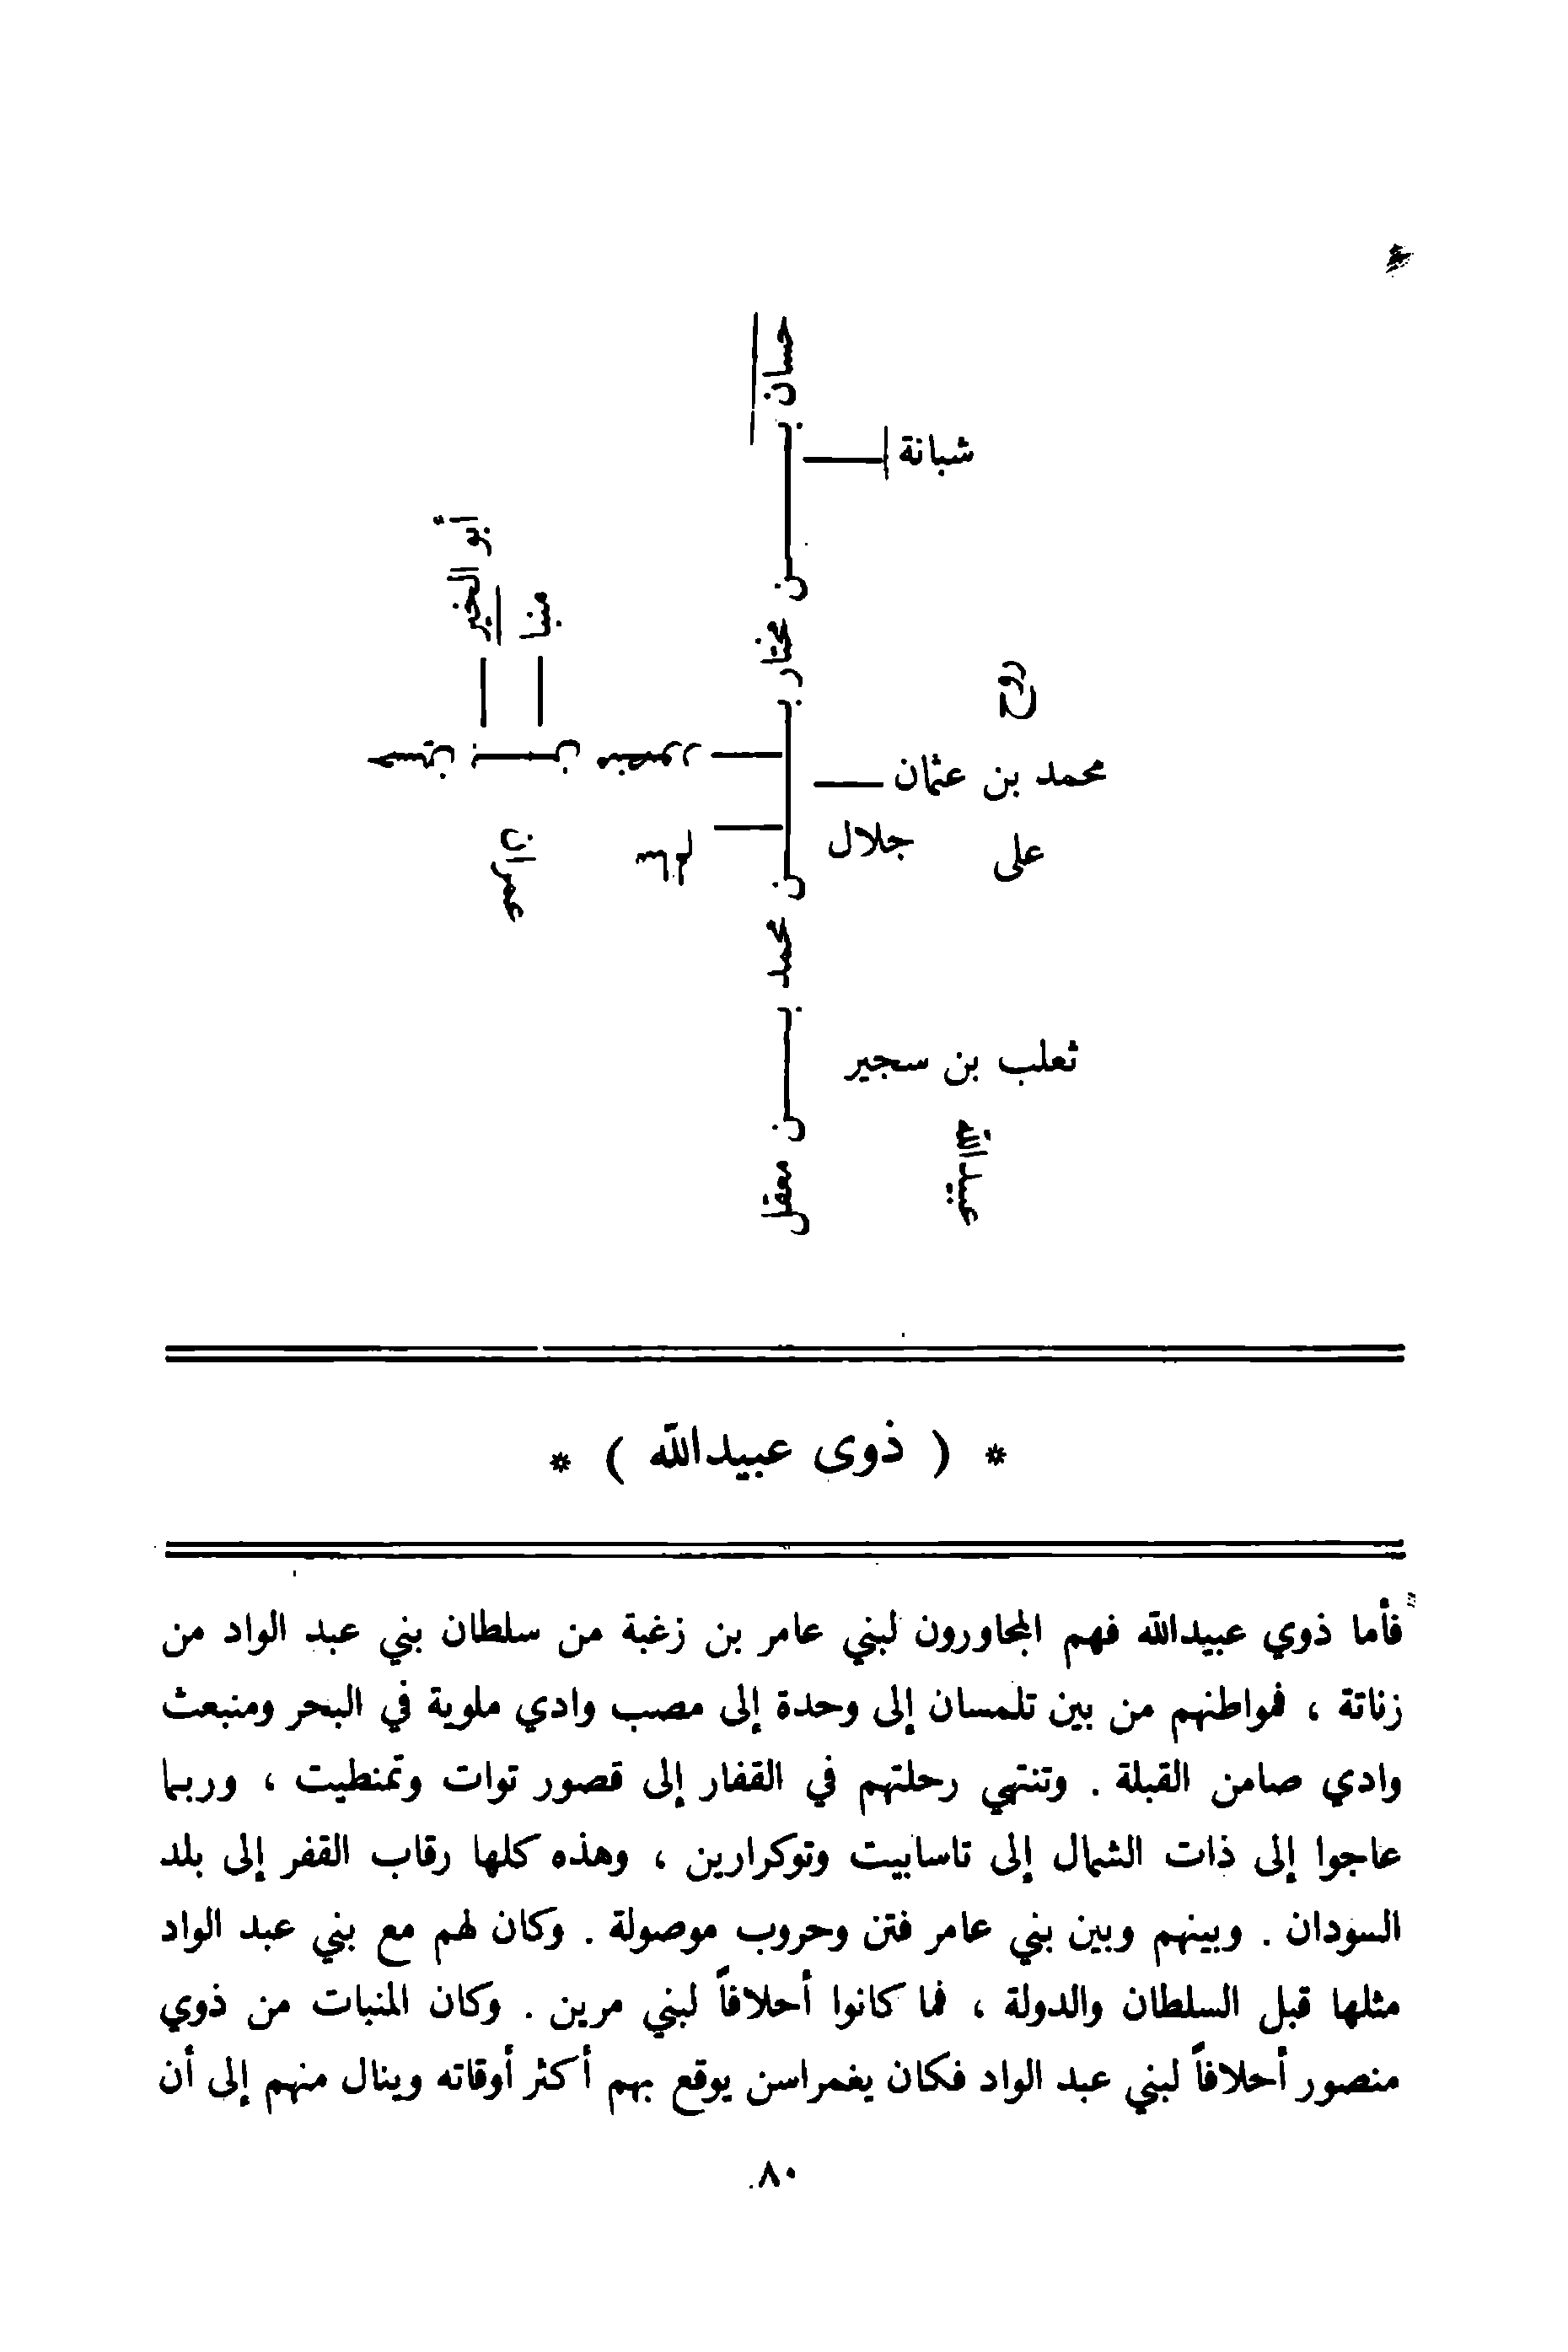 حسان بن مختار بن محمد بن معقل
شبانة
أبو الخير
منبا
حسين بن منصور
عمران
سالم
روح
محمد بن عثمان
جلال
على
ثعلب بن سجير
عبيدالله
* ( ذوى عبيدالله ) *
فأما ذوي عبيدالله فهم المجاورون لبني عامر بن زغبة من سلطان بني عبد الواد من
زناتة ، فمواطنهم من بين تلمسان إلى وحدة إلى مصب وادي ملوية في البحر ومنبعث
وادي صامن القبلة . وتنتهي رحلتهم في القفار إلى قصور توات وتمنطيت ، وربما
عاجوا إلى ذات الشمال إلى تاسابيت وتوكرارين ، وهذه كلها رقاب القفر إلى بلد
السودان . وبينهم وبين بني عامر فتن وحروب موصولة . وكان لهم مع بني عبد الواد
مثلها قبل السلطان والدولة ، فما كانوا أحلافاً لبني مرين . وكان المنبات من ذوي
منصور أحلافاً لبني عبد الواد فكان يغمراسن يوقع بهم أكثر أوقاته وينال منهم إلى أن
٨٠